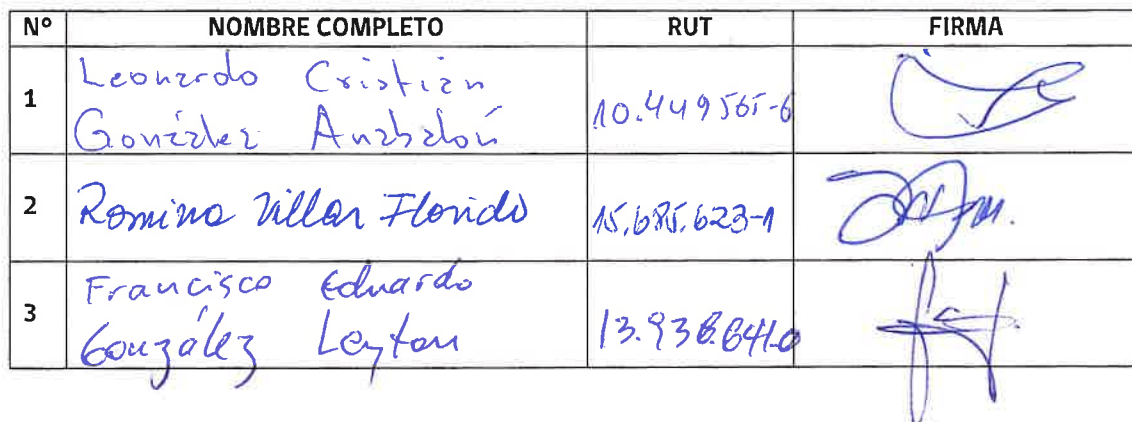 N° NOMBRE COMPLETO RUT FIRMA
1 Leonardo Cristian
González Anabalón 10.449565-6
2 Romina Villar Florido 15.685.623-1
3 Francisco Eduardo
González Leyton